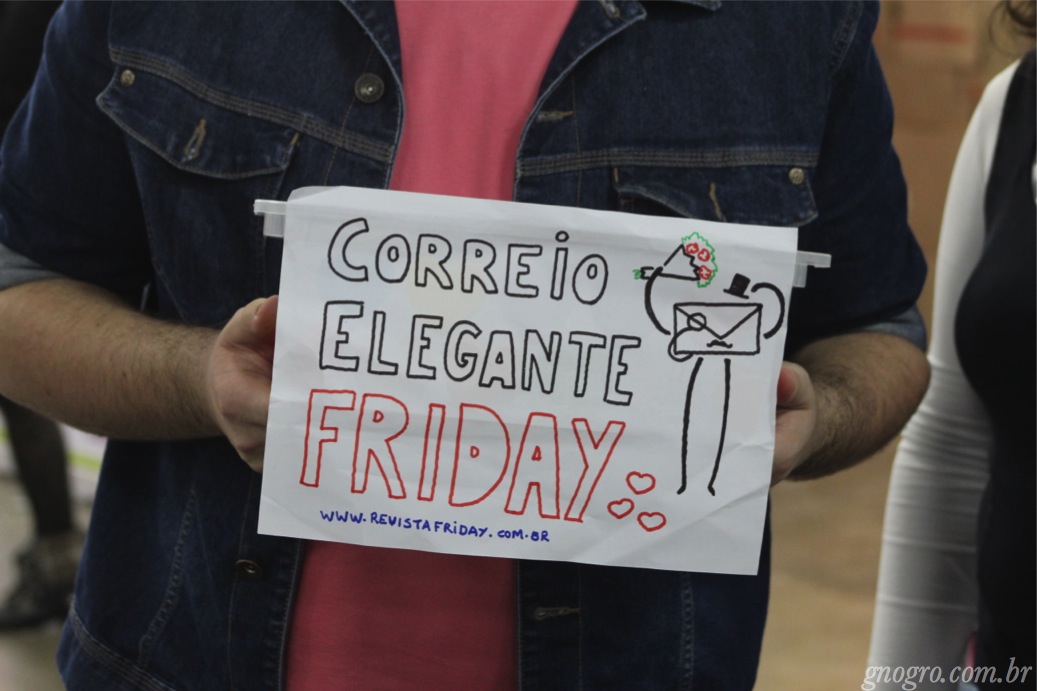 CORREiO
ELEGANTE
FRIDAY
WWW.REVISTAFRiDAY.COM.BR
gnogro.com.br